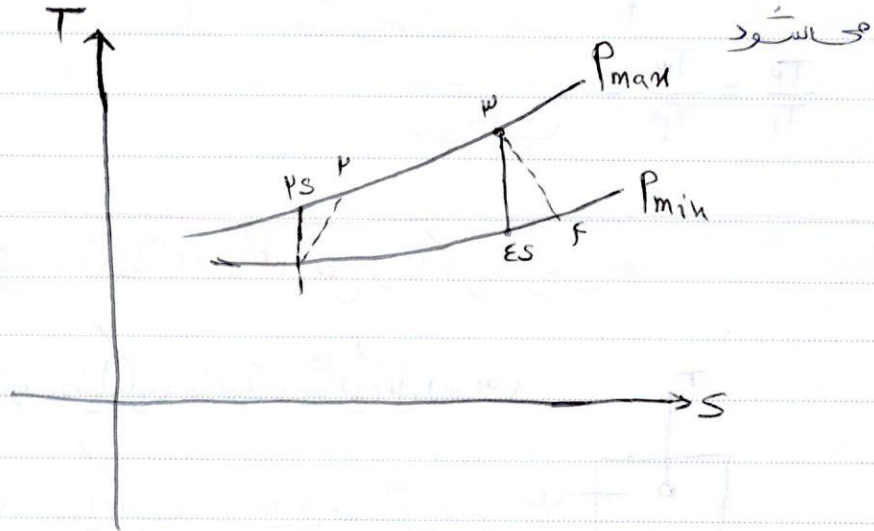 می‌شود
T
Pmax
۳
۲S
۲
Pmin
۴S
۴
S